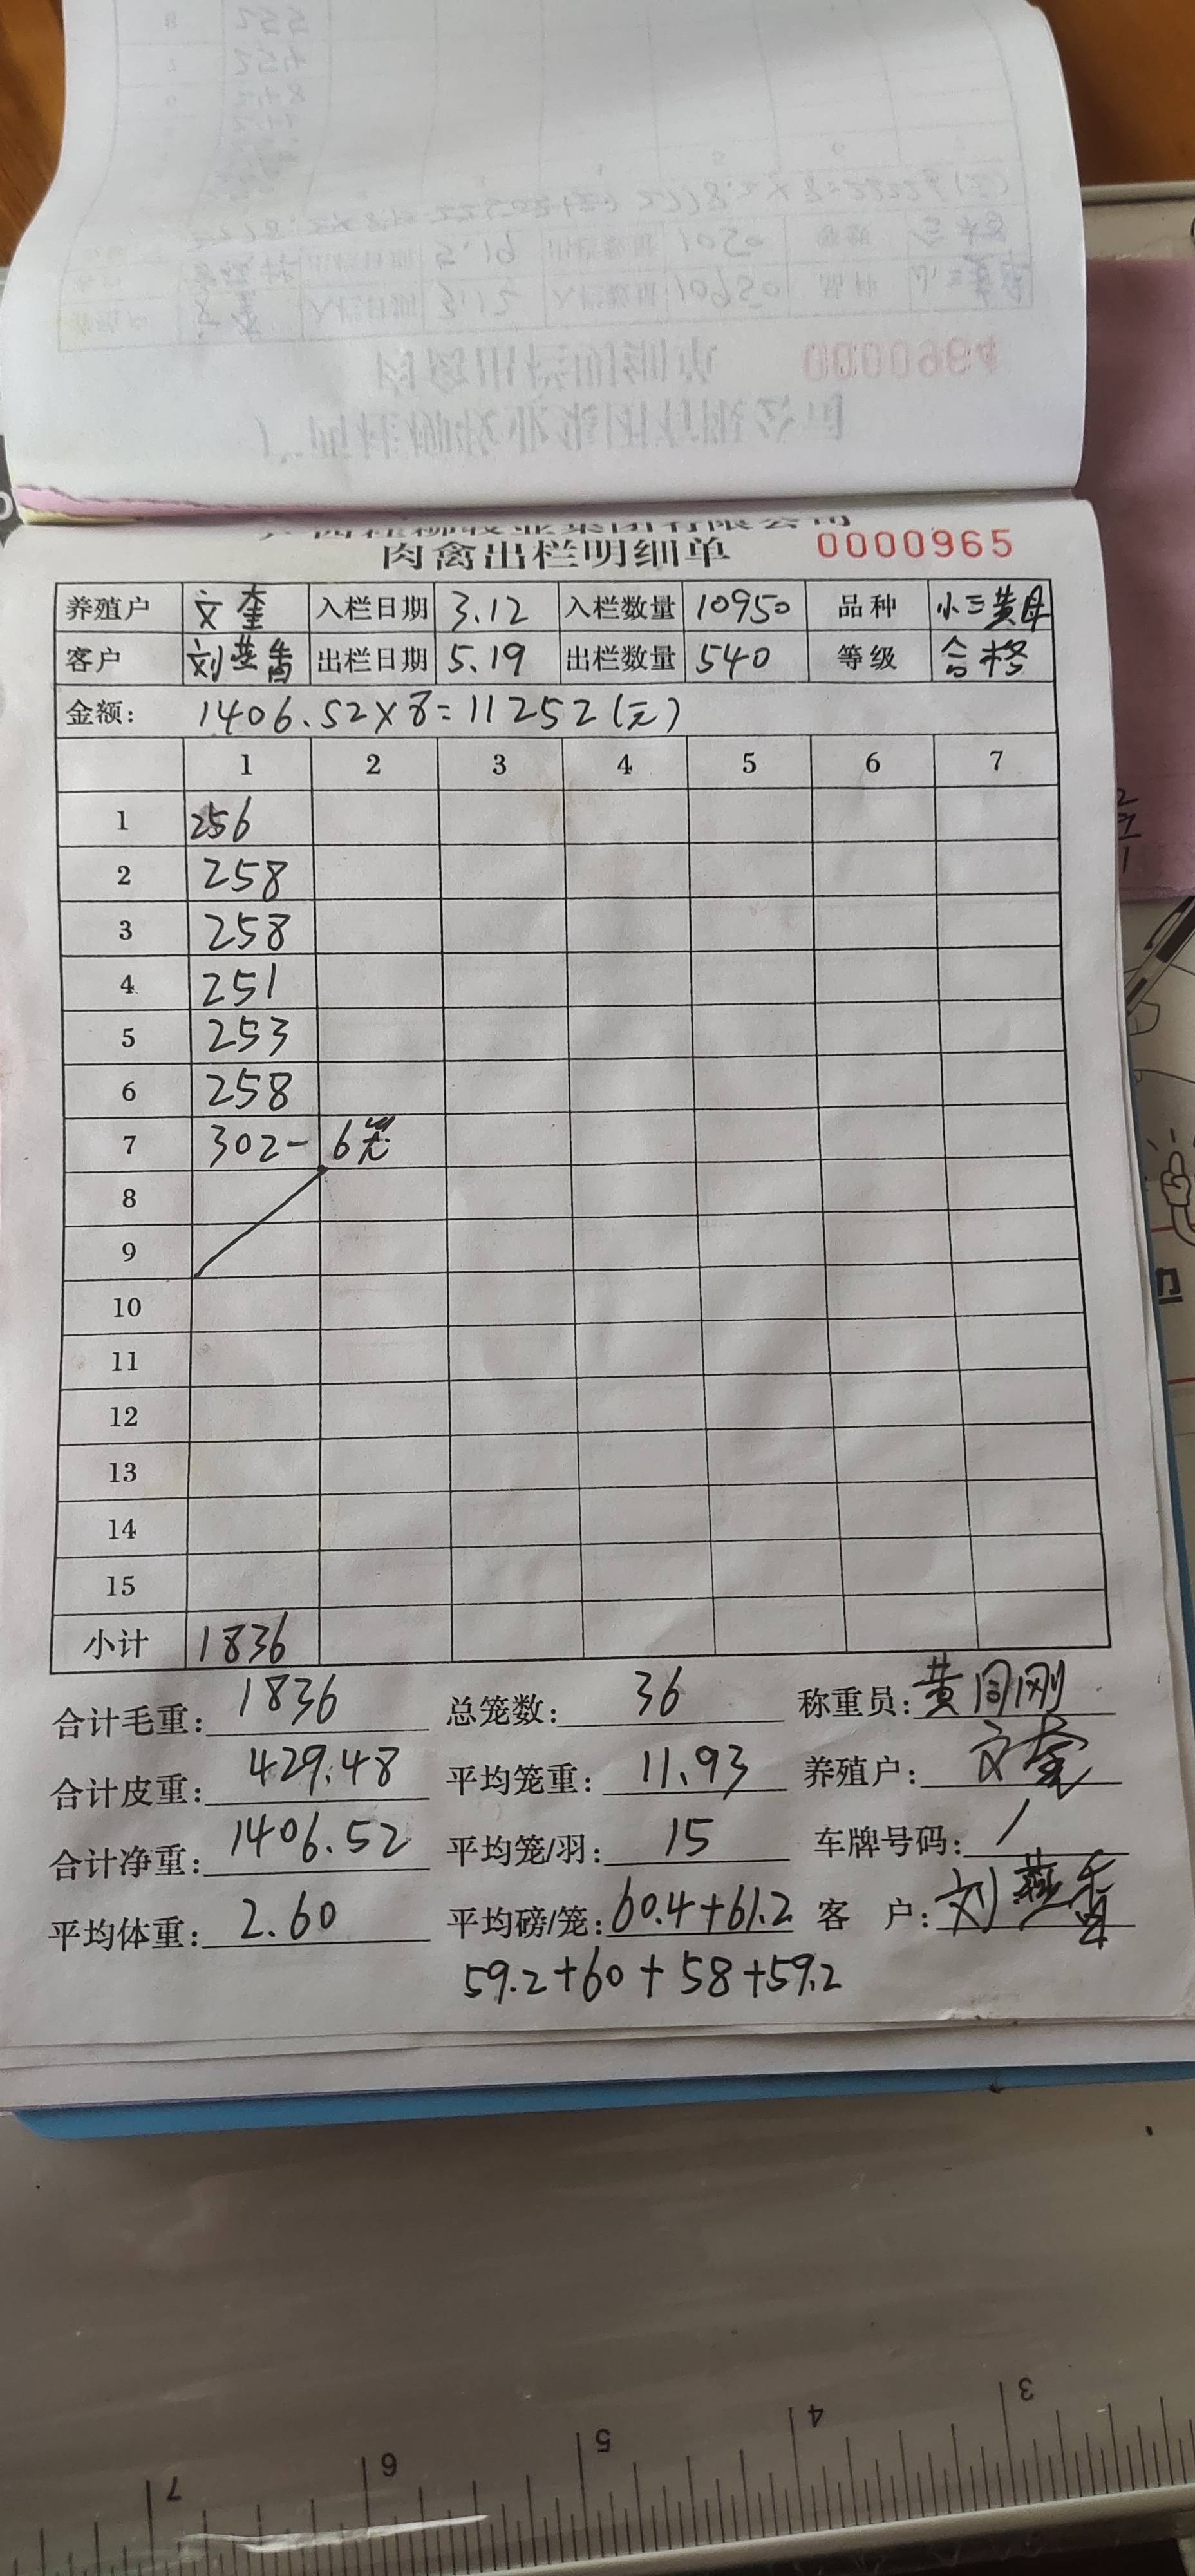 广西桂柳牧业集团有限公司
肉禽出栏明细单 0000965
养殖户 文奎 入栏日期 3.12 入栏数量 10950 品种 小三黄母
客户 刘燕香 出栏日期 5.19 出栏数量 540 等级 合格
金额: 1406.52×8=11252(元)
1 2 3 4 5 6 7
1 256
2 258
3 258
4 251
5 253
6 258
7 302- 6笼
8
9
10
11
12
13
14
15
小计 1836
合计毛重: 1836 总笼数: 36 称重员: 黄同刚
合计皮重: 429.48 平均笼重: 11.93 养殖户: 文奎
合计净重: 1406.52 平均笼/羽: 15 车牌号码: /
平均体重: 2.60 平均磅/笼: 60.4+61.2 客 户: 刘燕香
59.2+60+58+59.2
7 6 5 4 3